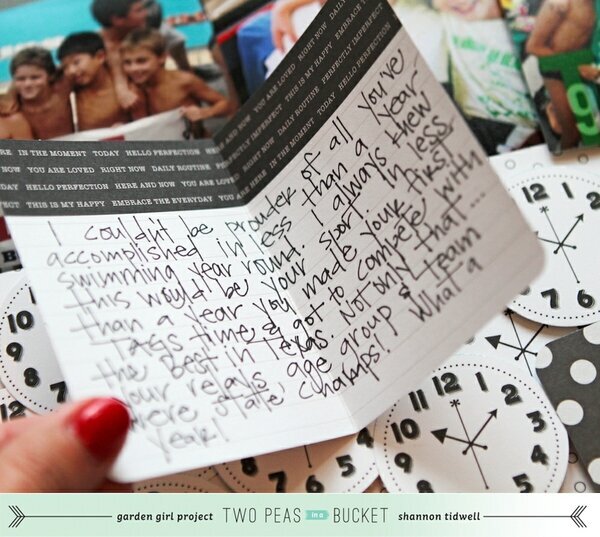 RE IN THE MOMENT TODAY HELLO PERFECTION HERE AND NOW YOU ARE LOVED RIGHT NOW DAILY
NOW YOU ARE LOVED RIGHT NOW DAILY ROUTINE PERFECTLY IMPERFECT THIS IS MY HAPPY EMBRACE THE
DAY HELLO PERFECTION HERE AND NOW YOU ARE LOVED RIGHT NOW DAILY ROUTINE PERFECTLY IMPERFECT
THIS IS MY HAPPY EMBRACE THE EVERYDAY YOU ARE HERE IN THE MOMENT TODAY HELLO PERFECTION
I couldn't be prouder of all you've
accomplished in less than a year
swimming year round. I always knew
this would be your sport. In less
than a year you made your first
TAGS time & got to compete with
the best in Texas. Not only that...
your relays age group & team
were state champs! What a
yeah!
9
12 1 2 7 6
10 9 8 7
12
12 1 2 10 9 8 4 5 6
5 4
garden girl project TWO PEAS in a BUCKET shannon tidwell